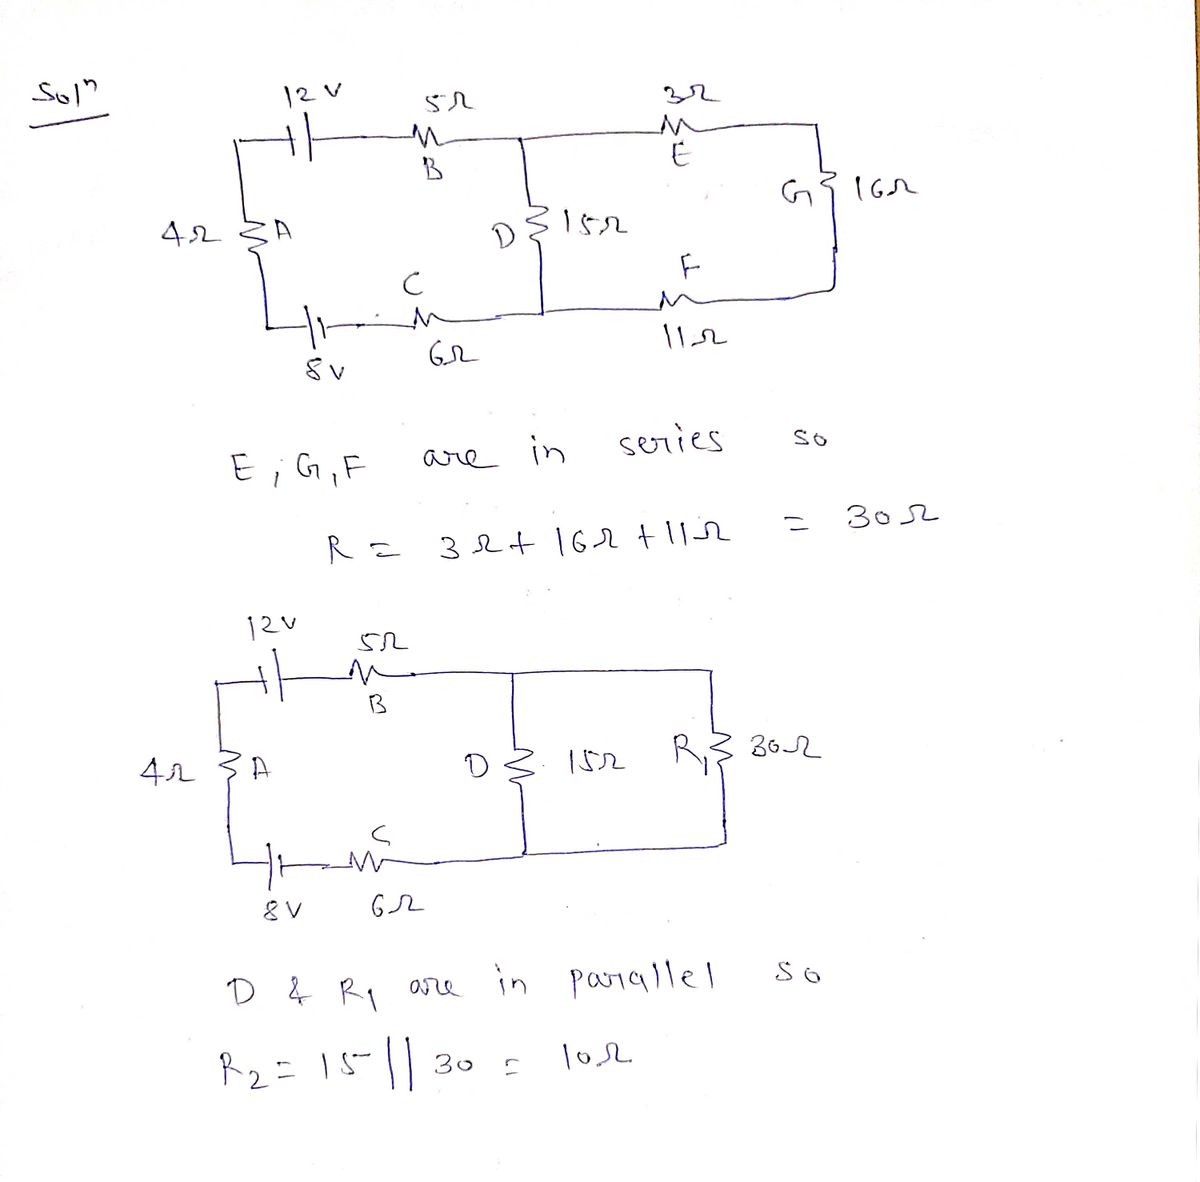 Solⁿ
12 V 5Ω 3Ω
B E
G 16Ω
4Ω A D 15Ω
C F
8V 6Ω 11Ω
E, G, F are in series so
R = 3Ω + 16Ω + 11Ω = 30Ω
12V 5Ω
B
4Ω A D 15Ω R₁ 30Ω
C
8V 6Ω
D & R₁ are in parallel so
R₂ = 15 || 30 = 10Ω